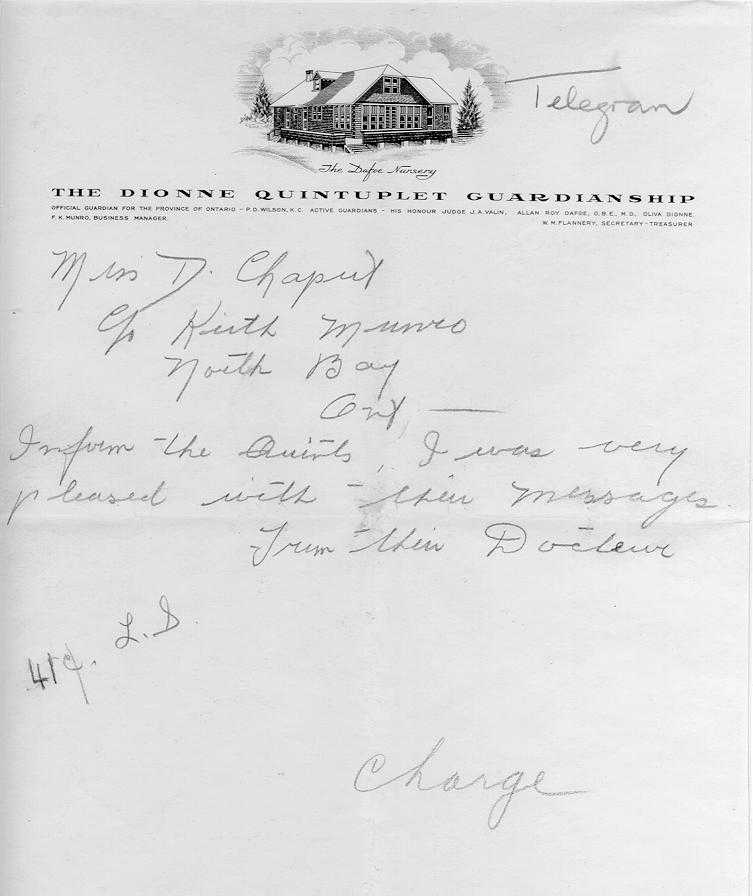 Telegram
The Dafoe Nursery
THE DIONNE QUINTUPLET GUARDIANSHIP
OFFICIAL GUARDIAN FOR THE PROVINCE OF ONTARIO - P.D. WILSON, K.C. ACTIVE GUARDIANS - HIS HONOUR JUDGE J.A. VALIN, ALLAN ROY DAFOE, O.B.E., M.D. OLIVA DIONNE
F.K. MUNRO, BUSINESS MANAGER. W.M. FLANNERY, SECRETARY-TREASURER
Miss D. Chaput
c/o Keith Munro
North Bay
Ont —
Inform the Quints, I was very
pleased with their messages.
From their Docteur
L.D.
41¢.
Charge